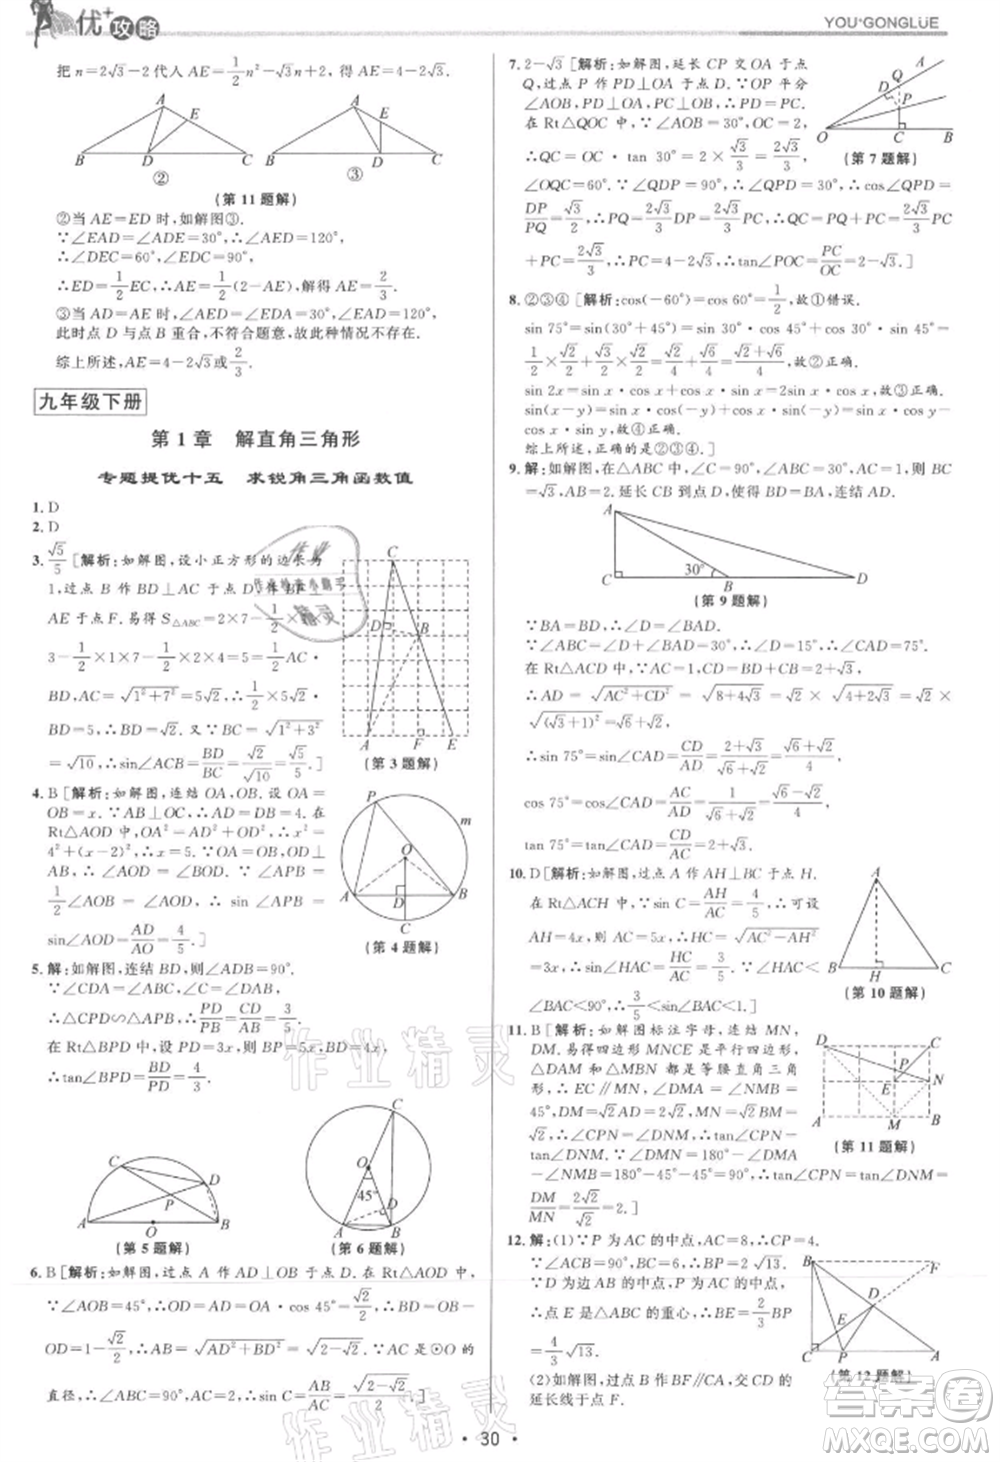 优+攻略
YOU+GONGLUE
把 n=2√3-2代人 AE=1/2n²-√3n+2，得 AE=4-2√3.
A
E
B
D
C
②
A
E
B
D
C
③
(第 11 题解)
②当 AE=ED 时，如解图③.
∵∠EAD=∠ADE=30°，∴∠AED=120°，
∴∠DEC=60°，∠EDC=90°.
∴ED=1/2EC，∴AE=1/2(2-AE)，∴AE=2/3.
③当 AD=AE 时，∠AED=∠ADE=30°，∴∠EAD=120°，
此时点 D 与点 B 重合，不符合题意，故此种情况不存在.
综上所述，AE=4-2√3或2/3.
九年级下册
第 1 章　解直角三角形
专题提优十五　求锐角三角函数值
1. D
2. D
3. √5/5 [解析：如解图，设小正方形的边长为
1，过点 B 作 BD⊥AC 于点 D，作 BF⊥
AE 于点 F. 易得 S△ABC=2×7-1/2×1×
3-1/2×1×7-1/2×2×4=5=1/2AC·
BD，AC=√(1²+7²)=5√2，∴1/2×5√2·
BD=5，∴BD=√2. ∵BC=√(1²+3²)=
√10，∴sin∠ACB=BD/BC=√2/√10=√5/5.]
C
D
B
A
F
E
(第 3 题解)
4. B [解析：如解图，连结 OA，OB. 设 OA=
OB=x. ∵AB=8，∴AD=DB=4. 在
Rt△AOD 中，OA²=AD²+OD²，∴x²=
4²+(x-2)²，∴x=5. ∵OA=OB，
OD⊥AB，∴∠AOD=∠BOD. ∵∠APB=
1/2∠AOB=∠AOD，∴sin∠APB=
sin∠AOD=AD/AO=4/5.]
P
m
O
A
B
C
(第 4 题解)
5. 解：如解图，连结 BD，则∠ADB=90°.
∵∠CDA=∠CBA，∠DCB=∠DAB，
∴△CPD∽△APB，∴PD/PB=CD/AB=3/4.
在 Rt△BPD 中，设 PD=3x，则 BP=4x，∴BD=√7x，
∴tan∠BPD=BD/PD=√7/3.
C
D
P
A
O
B
(第 5 题解)
C
O
45°
D
A
B
(第 6 题解)
6. B [解析：如解图，过点 A 作 AD⊥OB 于点 D.
∵∠AOB=45°，∴OD=AD=OA·cos 45°=√2/2，∴BD=
OD=1-√2/2，∴AB=√(AD²+BD²)=√(2-√2). ∵AC 是⊙O 的
直径，∴∠ABC=90°，AC=2，∴sin C=AB/AC=√(2-√2)/2.]
7. 2-√3 [解析：如解图，延长 CP 交 OA 于点
Q，过点 P 作 PD⊥OA 于点 D. ∵OP 平分
∠AOB，PC⊥OB，∴PD=PC.
在 Rt△QOC 中，∵∠AOB=30°，OC=2，
∴QC=OC·tan 30°=2×√3/3=2√3/3，
∠QCO=60°. ∵∠QDP=90°，∴∠QPD=30°，∴cos∠QPD=
DP/PQ=√3/2，∴PQ=2√3/3DP=2√3/3PC，∴QC=PQ+PC=2√3/3PC
+PC=2√3/3，∴PC=4-2√3，∴tan∠POC=PC/OC=2-√3.]
A
Q
D
P
O
C
B
(第 7 题解)
8. ②③④ [解析：cos(-60°)=cos 60°=1/2，故①错误.
sin 75°=sin(30°+45°)=sin 30°·cos 45°+cos 30°·sin 45°=
1/2×√2/2+√3/2×√2/2=(√2+√6)/4，故②正确.
sin 2x=sin x·cos x+cos x·sin x=2sin x·cos x，故③正确.
sin(x-y)=sin x·cos(-y)+cos x·sin(-y)=sin x·cos y-
cos x·sin y，故④正确.
综上所述，正确的是②③④.]
9. 解：如解图，在△ABC 中，∠C=90°，∠ABC=30°，AC=1，则 BC
=√3，AB=2. 延长 CB 到点 D，使得 BD=AB，连结 AD.
A
30°
C
B
D
(第 9 题解)
∵BA=BD，∴∠D=∠BAD.
∵∠ABC=∠D+∠BAD=30°，∴∠D=15°，∴∠CAD=75°.
在 Rt△ACD 中，∵CD=CB+BD=2+√3，
∴AD=√(AC²+CD²)=√(8+4√3)=√2×√(4+2√3)=√2×
√(√3+1)²=√6+√2，
∴sin 75°=sin∠CAD=CD/AD=(2+√3)/(√6+√2)=(√6+√2)/4，
cos 75°=cos∠CAD=AC/AD=1/(√6+√2)=(√6-√2)/4，
tan 75°=tan∠CAD=CD/AC=2+√3.
10. D [解析：如解图，过点 A 作 AH⊥BC 于点 H.
在 Rt△ACH 中，∵sin C=AH/AC=4/5，∴可设
AH=4x，则 AC=5x，∴CH=√(AC²-AH²)
=3x，∴sin∠HAC=HC/AC=3/5. ∵60°<
∠BAC<90°，∴3/5<sin∠BAC<1.]
A
B
H
C
(第 10 题解)
11. B [解析：如解图标注字母，连结 MN，
DM. 易得四边形 MNCE 是平行四边形，
△DAM 和△MBN 都是等腰直角三角
形，∴EC∥MN，∠DMA=∠NMB=
45°，DM=2√2，MN=√2，∴∠CPN=
∠DNM，∴∠CPN=tan∠DNM. ∵∠DMN=180°-∠DMA-
∠NMB=180°-45°-45°=90°，∴tan∠CPN=tan∠DNM=
DM/MN=2√2/√2=2.]
D
C
P
E
N
A
M
B
(第 11 题解)
12. 解：(1)∵P 为 AC 的中点，AC=8，∴CP=4.
∵∠ACB=90°，BC=6，∴BP=2√13.
∵D 为边 AB 的中点，P 为 AC 的中点，
∴点 E 是△ABC 的重心，∴BE=2/3BP
=4/3√13.
(2)如解图，过点 B 作 BF∥CA，交 CD 的
延长线于点 F.
B
F
D
E
C
P
A
(第 12 题解)
·30·
作业精灵
答案圈
MXQE.COM